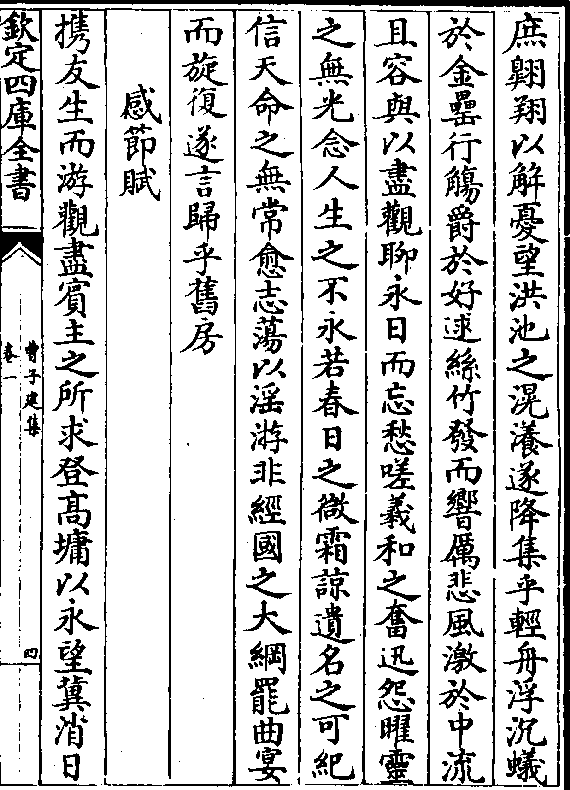 庶翺翔以解憂望洪池之滉瀁遂降集乎輕舟浮沉蟻
於金罍行觴爵於好逑絲竹發而響厲悲風激於中流
且容與以盡觀聊永日而忘愁嗟羲和之奮迅怨曜靈
之無光念人生之不永若春日之微霜諒遺名之可紀
信天命之無常愈志蕩以淫游非經國之大綱罷曲宴
而旋復遂言歸乎舊房
感節賦
携友生而游觀盡賓主之所求登高墉以永望冀消日
欽定四庫全書
曹子建集
卷一
四